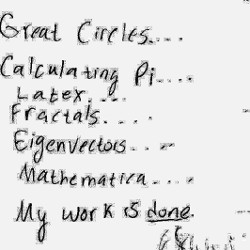 Great Circles....
Calculating Pi....
Latex....
Fractals....
Eigenvectors...
Mathematica....
My work is done.